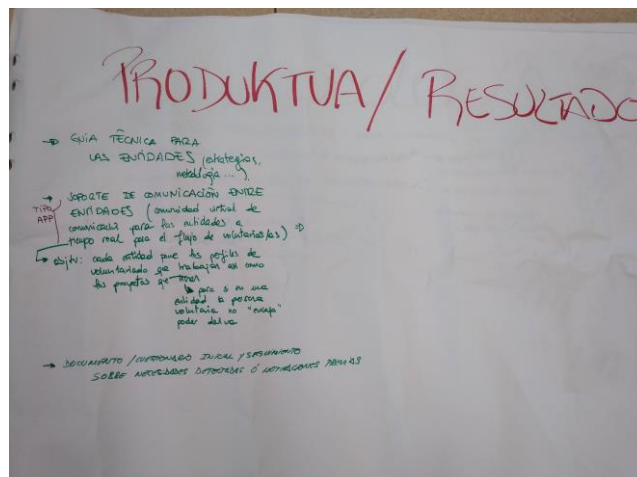 PRODUKTUA / RESULTADO
→ GUÍA TÉCNICA PARA
LAS ENTIDADES (estrategias,
metodología...)
→ SOPORTE DE COMUNICACIÓN ENTRE
ENTIDADES (comunidad virtual de
comunicación para las entidades a
tiempo real para el flujo de voluntarios/as) ⇒
TIPO
APP
→ objtv: cada entidad pone los perfiles de
voluntariado que trabajan así como
los proyectos que
↳ para si en una
entidad la persona
voluntaria no "encaja"
poder
→ DOCUMENTO / CUESTIONARIO INICIAL Y SEGUIMIENTO
SOBRE NECESIDADES DETECTADAS Ó MOTIVACIONES PREVIAS